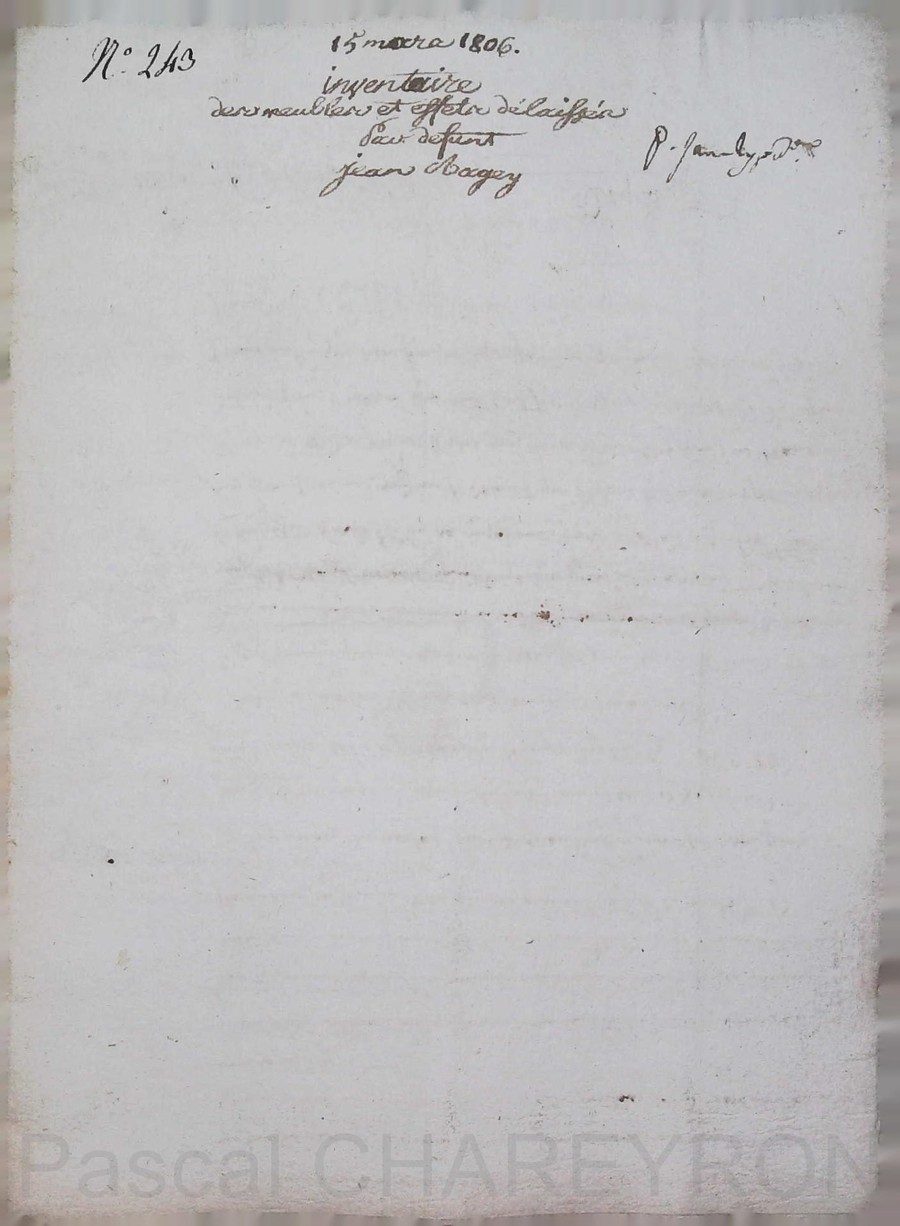 N.° 243
15 mars 1806.
inventaire
des meubles et effets délaissés
Par defunt
jean Ragey
P.
Pascal CHAREYRON